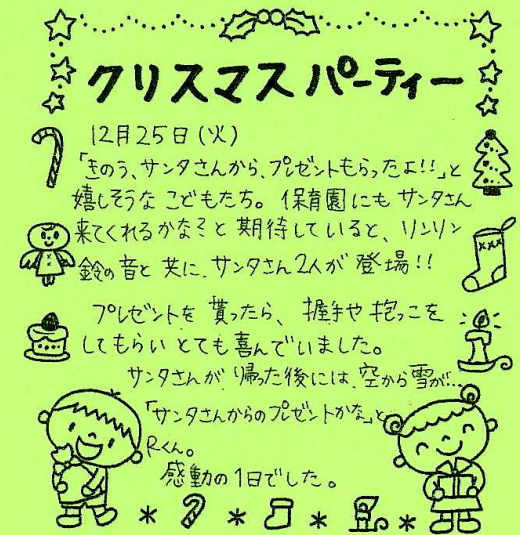 クリスマスパーティー
12月25日(火)
「きのう、サンタさんから、プレゼントもらったよ!!」と
嬉しそうな こどもたち。保育園にも サンタさん
来てくれるかな?と 期待していると、リンリン
鈴の音と 共に、サンタさん2人が 登場!!
プレゼントを 貰ったら、握手や 抱っこを
してもらい とても喜んでいました。
サンタさんが 帰った後には、空から雪が…
「サンタさんからのプレゼントかな」と
Rくん。
感動の1日でした。